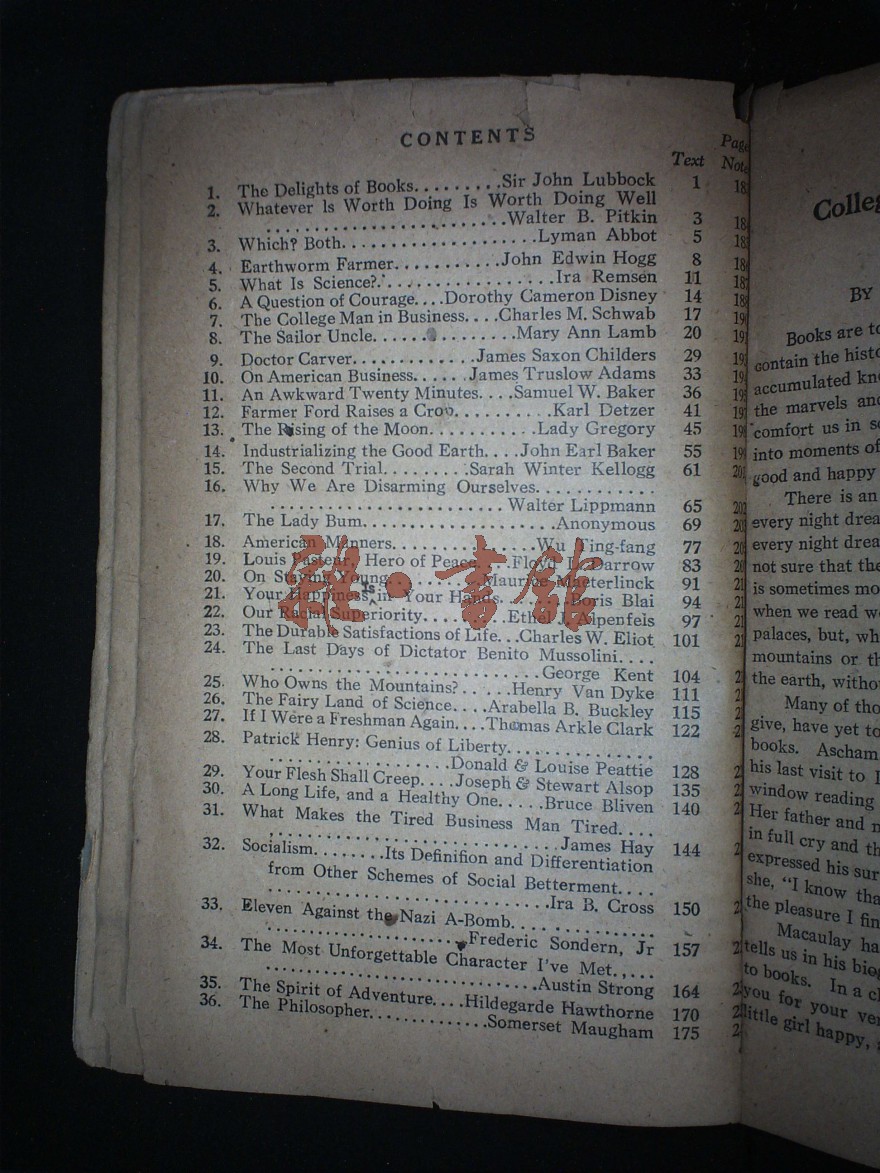 CONTENTS
Text
Page
Note
1. The Delights of Books.........Sir John Lubbock 1 18
2. Whatever Is Worth Doing Is Worth Doing Well
..........................Walter B. Pitkin 3 18
3. Which? Both....................Lyman Abbot 5 18
4. Earthworm Farmer...........John Edwin Hogg 8 18
5. What Is Science?.................Ira Remsen 11 18
6. A Question of Courage....Dorothy Cameron Disney 14 18
7. The College Man in Business....Charles M. Schwab 17 19
8. The Sailor Uncle...............Mary Ann Lamb 20 19
9. Doctor Carver.............James Saxon Childers 29 19
10. On American Business......James Truslow Adams 33 19
11. An Awkward Twenty Minutes....Samuel W. Baker 36 19
12. Farmer Ford Raises a Crop..........Karl Detzer 41 19
13. The Rising of the Moon...........Lady Gregory 45 19
14. Industrializing the Good Earth....John Earl Baker 55 19
15. The Second Trial.........Sarah Winter Kellogg 61 20
16. Why We Are Disarming Ourselves............
..........................Walter Lippmann 65 202
17. The Lady Bum....................Anonymous 69 20
18. American Manners...............Wu Ting-fang 77 20
19. Louis Pasteur, Hero of Peace....Floyd L. Darrow 83 20
20. On Staying Young..........Maurice Maeterlinck 91 21
21. Your Happiness Is in Your Hands........Boris Blai 94 21
22. Our Racial Superiority.........Ethel J. Alpenfels 97 21
23. The Durable Satisfactions of Life...Charles W. Eliot 101 21
24. The Last Days of Dictator Benito Mussolini....
..............................George Kent 104 2
25. Who Owns the Mountains?......Henry Van Dyke 111 2
26. The Fairy Land of Science....Arabella B. Buckley 115 2
27. If I Were a Freshman Again....Thomas Arkle Clark 122 2
28. Patrick Henry: Genius of Liberty.............
....................Donald & Louise Peattie 128 2
29. Your Flesh Shall Creep....Joseph & Stewart Alsop 135 2
30. A Long Life, and a Healthy One.....Bruce Bliven 140 2
31. What Makes the Tired Business Man Tired....
................................James Hay 144 2
32. Socialism........Its Definition and Differentiation
from Other Schemes of Social Betterment....
...............................Ira B. Cross 150 2
33. Eleven Against the Nazi A-Bomb...............
......................Frederic Sondern, Jr 157 2
34. The Most Unforgettable Character I've Met.....
..............................Austin Strong 164 2
35. The Spirit of Adventure....Hildegarde Hawthorne 170 2
36. The Philosopher.............Somerset Maugham 175 2
雜·書館
Colleg
BY
Books are to
contain the histo
accumulated kno
the marvels and
comfort us in so
into moments of
good and happy
There is an
every night drea
every night drea
not sure that the
is sometimes mo
when we read w
palaces, but, wh
mountains or th
the earth, witho
Many of tho
give, have yet to
books. Ascham
his last visit to I
window reading
Her father and m
in full cry and th
expressed his sur
she, "I know tha
the pleasure I fin
Macaulay ha
tells us in his biog
to books. In a cl
you for your ver
little girl happy,